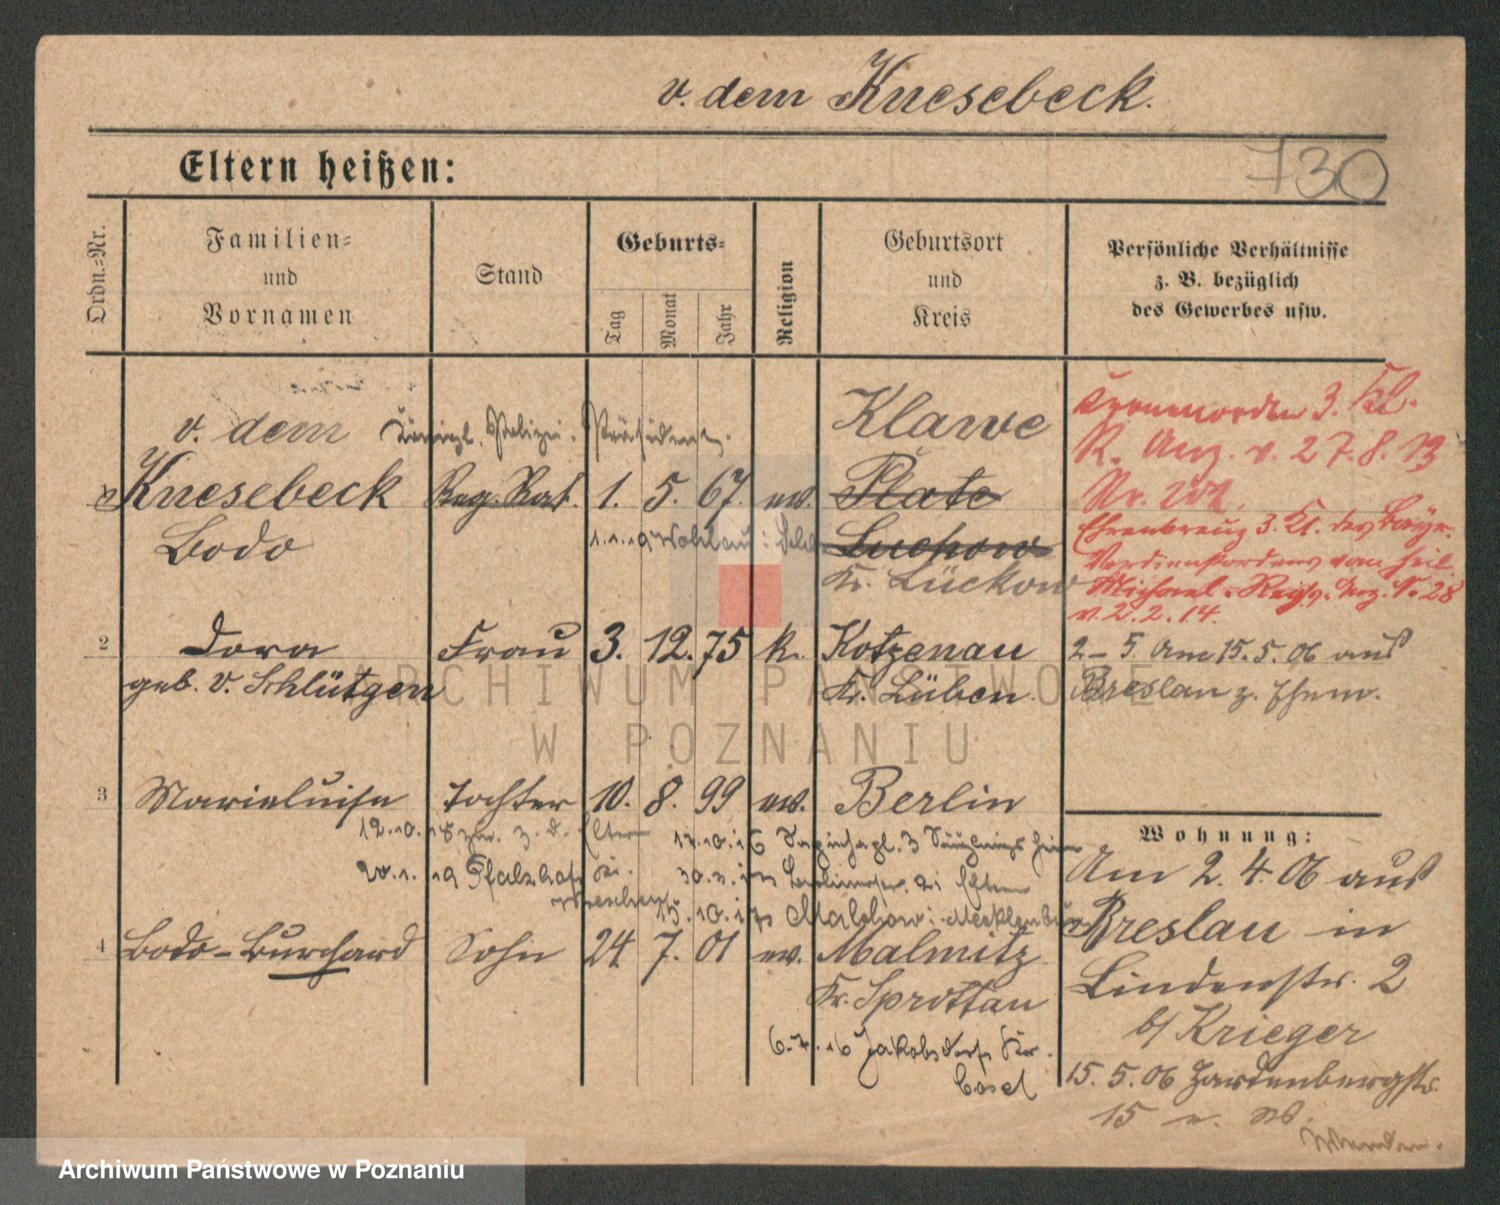 v. dem Knesebeck.
Eltern heißen:
730
Ordn.-Nr.
Familien-
und
Vornamen
Stand
Geburts-
Tag
Monat
Jahr
Religion
Geburtsort
und
Kreis
Persönliche Verhältnisse
z. B. bezüglich
des Gewerbes usw.
v. dem Königl. Polizei-Präsident.
Knesebeck Reg. Rat. 1. 5. 67. ev.
Bodo
Klawe
Plate
Luchow
Kr. Lückow
Kronenorden 3. Kl.
R. Anz. v. 27. 8. 13
Nr. 201.
Ehrenkreuz 3. Kl. des Bayr.
Verdienstordens vom heil.
Michael. Reichs. Anz. N. 28
v. 2. 2. 14.
2 Dora Frau 3. 12. 75 k. Kotzenau
geb. v. Schlütgen Kr. Lüben.
2–5 Am 15. 5. 06 aus
Breslau z. Ehem.
3 Marieluise Tochter 10. 8. 99 ev. Berlin
12. 10. 18 zur. z. d. Eltern
20. 1. 19 Pfalzhof
4 Bodo-Burchard Sohn 24 7. 01 ev. Malmitz
Kr. Sprottau
6. 7. 16 Jakobsdorf Kr.
Cosel
Wohnung:
Am 2. 4. 06 aus
Breslau in
Lindenstr. 2
b/ Krieger
15. 5. 06 Hardenbergstr.
15
ARCHIWUM PAŃSTWOWE
W POZNANIU
Archiwum Państwowe w Poznaniu